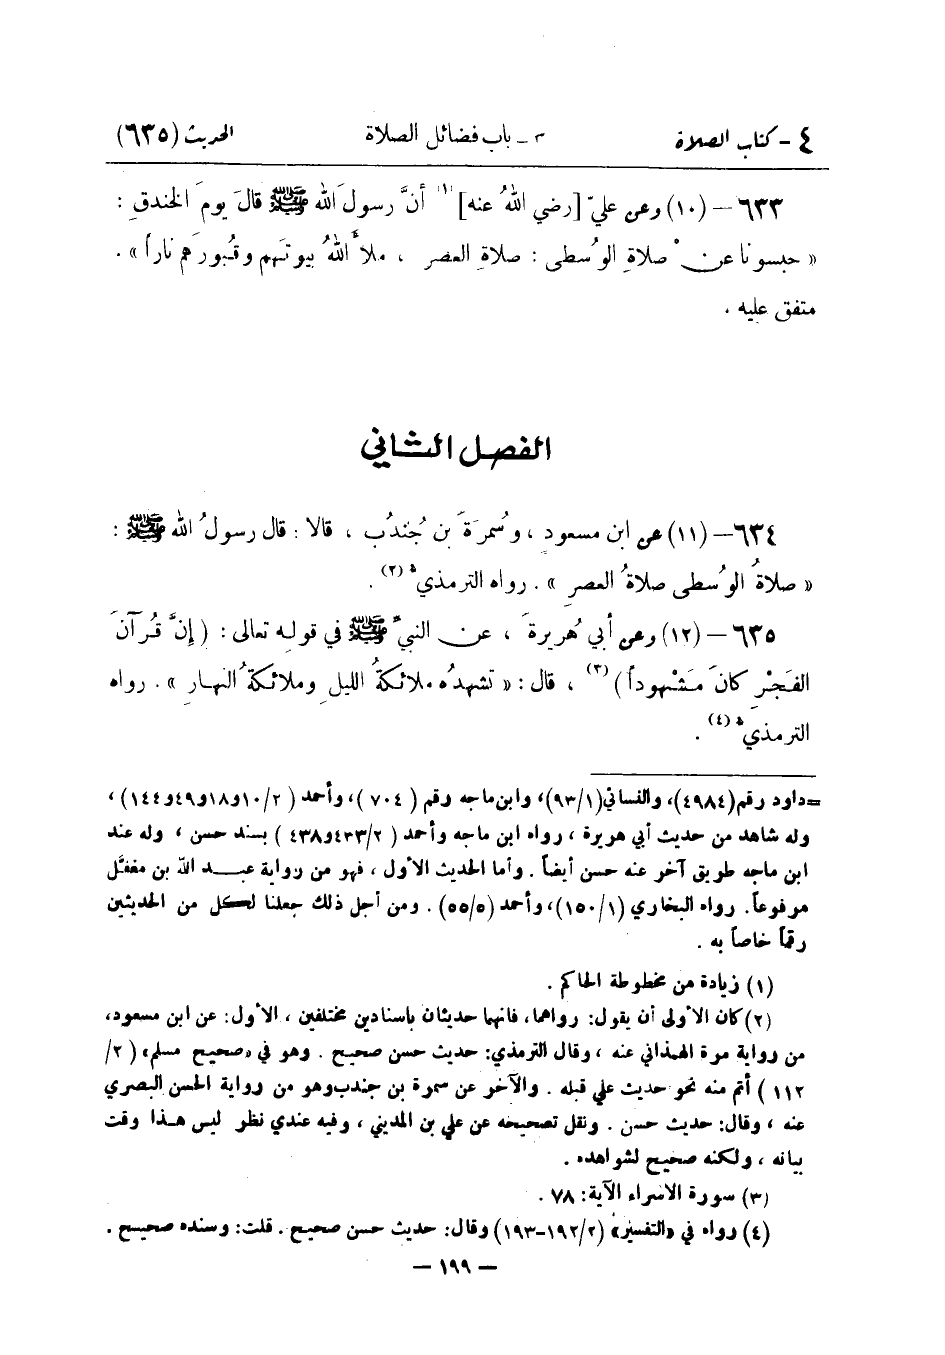 ٤ - كتاب الصلاة ٣ - باب فضائل الصلاة الحديث (٦٣٥)
٦٣٣ - (١٠) وعن عليّ [رضي اللهُ عنه] (١) أنَّ رسولَ الله ﷺ قالَ يومَ الخندقِ :
« حبسونا عن ْ صلاةِ الوُسطى : صلاةِ العصر ، ملأَ اللهُ بيوتَهم وقُبورَهم ناراً » .
متفق عليه .
الفصل الثاني
٦٣٤ - (١١) عن ابن مسعودٍ ، وسُمرَةَ بن جُندُب ، قالا : قال رسولُ الله ﷺ :
« صلاةُ الوُسطى صلاةُ العصرِ » . رواه الترمذيُّ (٢) .
٦٣٥ - (١٢) وعن أبي هُريرةَ ، عن النبيِّ ﷺ في قولِه تعالى : ( إنَّ قُرآنَ
الفَجْرِ كانَ مَشْهوداً ) (٣) ، قال : « تشهدُه ملائكةُ الليلِ وملائكةُ النهارِ » . رواه
الترمذيُّ (٤) .
=داود رقم (٤٩٨٤)، والنسائي (٩٣/١)، وابن ماجه رقم ( ٧٠٤ )، وأحمد ( ١٠/٢و١٨و٤٩و١٤٤) ،
وله شاهد من حديث أبي هريرة ، رواه ابن ماجه وأحمد ( ٤٣٣/٢و٤٣٨ ) بسند حسن ، وله عند
ابن ماجه طريق آخر عنه حسن أيضاً . وأما الحديث الأول ، فهو من رواية عبد الله بن مغفَّل
مرفوعاً. رواه البخاري (١٥٠/١)، وأحمد (٥٥/٥) . ومن أجل ذلك جعلنا لكل من الحديثين
رقماً خاصاً به .
(١) زيادة من مخطوطة الحاكم .
(٢) كان الأولى أن يقول: رواهما، فانهما حديثان باسنادين مختلفين ، الأول: عن ابن مسعود،
من رواية مرة الهمذاني عنه ، وقال الترمذي: حديث حسن صحيح . وهو في «صحيح مسلم» ( ٢/
١١٢ ) أتم منه نحو حديث علي قبله . والآخر عن سمرة بن جندب وهو من رواية الحسن البصري
عنه ، وقال: حديث حسن . ونقل تصحيحه عن علي بن المديني ، وفيه عندي نظر ليس هذا وقت
بيانه ، ولكنه صحيح لشواهده .
(٣) سورة الاسراء الآية: ٧٨ .
(٤) رواه في «التفسير» (١٩٢/٢-١٩٣) وقال: حديث حسن صحيح . قلت: وسنده صحيح .
— ١٩٩ —